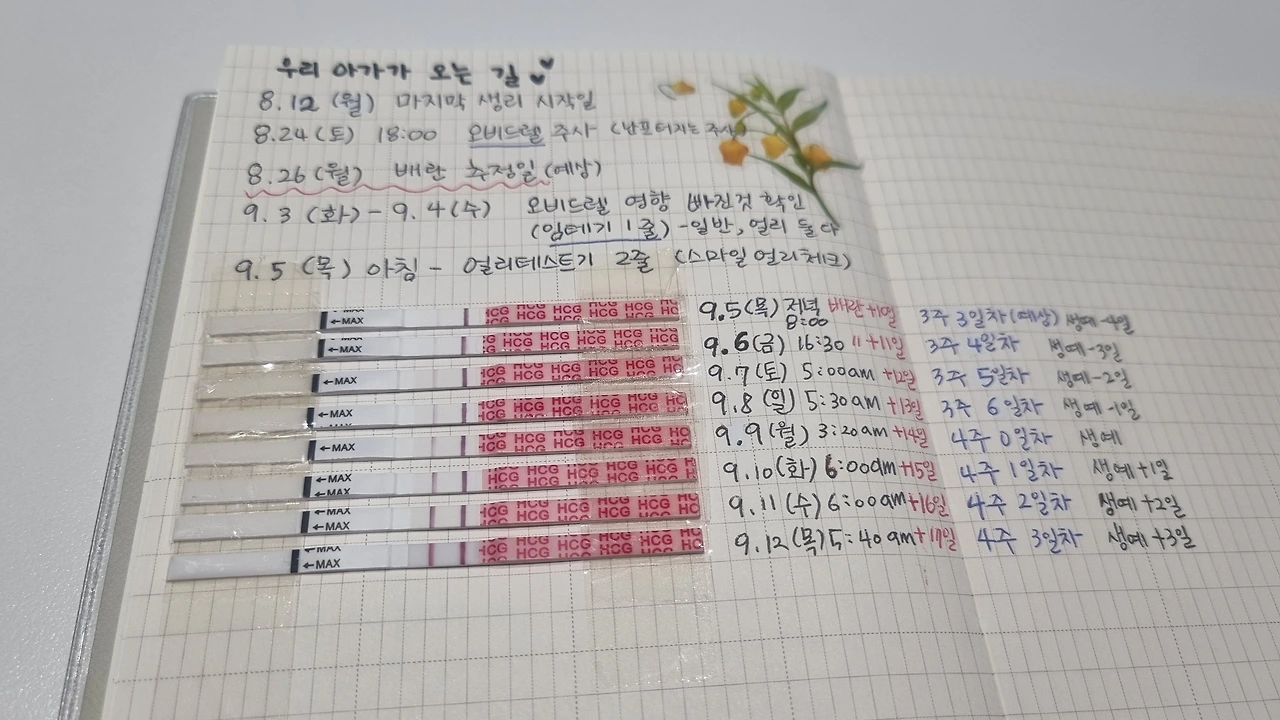 우리 아가가 오는 길
8.12 (월) 마지막 생리 시작일
8.24 (토) 18:00 오비드렐 주사 (난포터지는 주사)
8.26 (월) 배란 추정일 (예상)
9.3 (화) - 9.4 (수) 오비드렐 영향 빠진것 확인
(임테기 1줄) - 일반, 얼리 둘다
9.5 (목) 아침 - 얼리테스트기 2줄 (스마일 얼리체크)
←MAX HCG HCG HCG HCG HCG 9.5 (목) 저녁 8:00 배란+10일 3주 3일차 (예상) 생예-4일
←MAX HCG HCG HCG HCG HCG 9.6 (금) 16:30 〃 +11일 3주 4일차 생예-3일
←MAX HCG HCG HCG HCG HCG 9.7 (토) 5:00am +12일 3주 5일차 생예-2일
←MAX HCG HCG HCG HCG HCG 9.8 (일) 5:30am +13일 3주 6일차 생예-1일
←MAX HCG HCG HCG HCG HCG 9.9 (월) 3:20am +14일 4주 0일차 생예
←MAX HCG HCG HCG HCG HCG 9.10 (화) 6:00am +15일 4주 1일차 생예+1일
←MAX HCG HCG HCG HCG HCG 9.11 (수) 6:00am +16일 4주 2일차 생예+2일
←MAX HCG HCG HCG HCG HCG 9.12 (목) 5:40am +17일 4주 3일차 생예+3일